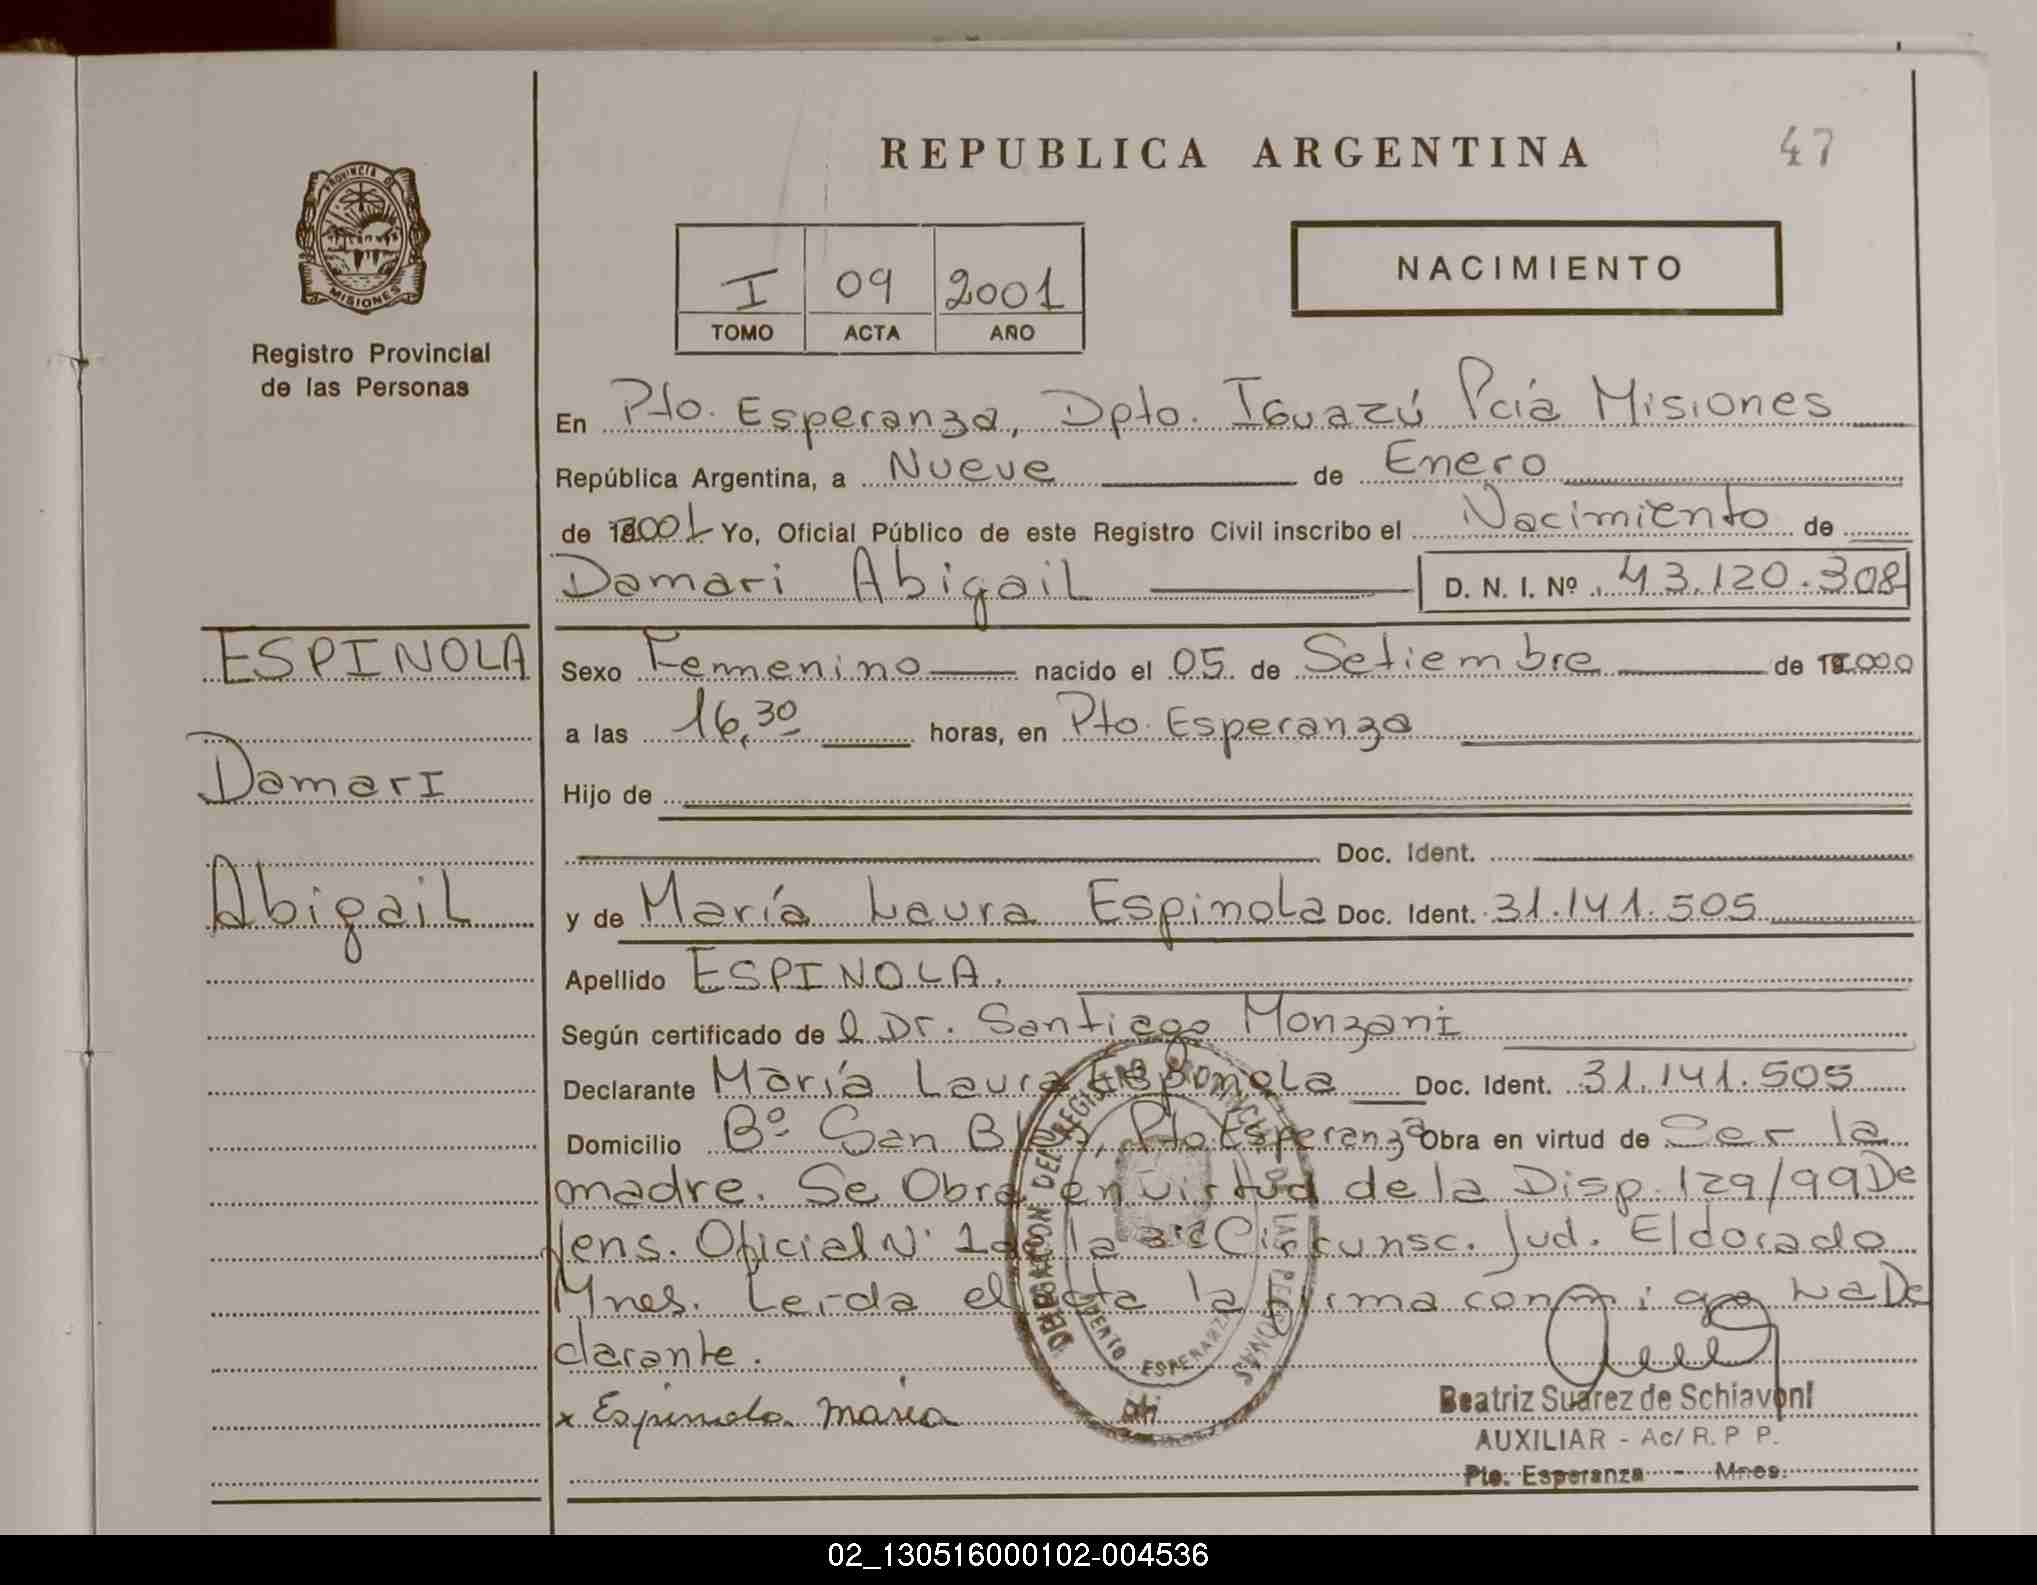 REPUBLICA ARGENTINA
47
PROVINCIA DE
MISIONES
Registro Provincial
de las Personas
I 09 2001
TOMO ACTA AÑO
NACIMIENTO
En Pto. Esperanza, Dpto. Iguazú Pcia Misiones
República Argentina, a Nueve de Enero
de 2001 Yo, Oficial Público de este Registro Civil inscribo el Nacimiento de
Damari Abigail D. N. I. Nº 43.120.308
ESPINOLA
Damari
Abigail
Sexo Femenino nacido el 05 de Setiembre de 2000
a las 16,30 horas, en Pto. Esperanza
Hijo de
Doc. Ident.
y de María Laura Espinola Doc. Ident. 31.141.505
Apellido ESPINOLA.
Según certificado de l Dr. Santiago Monzani
Declarante María Laura Espinola Doc. Ident. 31.141.505
Domicilio Bº San Blas, Pto Esperanza Obra en virtud de Ser la
madre. Se Obra en virtud de la Disp. 129/99 De
fens. Oficial Nº 1 de la 3ra Circunsc. Jud. Eldorado
Mnes. Leída el acta la firma conmigo La De
clarante.
x Espinola maria
Beatriz Suárez de Schiavoni
AUXILIAR - Ac/ R. P P.
Pto. Esperanza - Mnes.
02_130516000102-004536